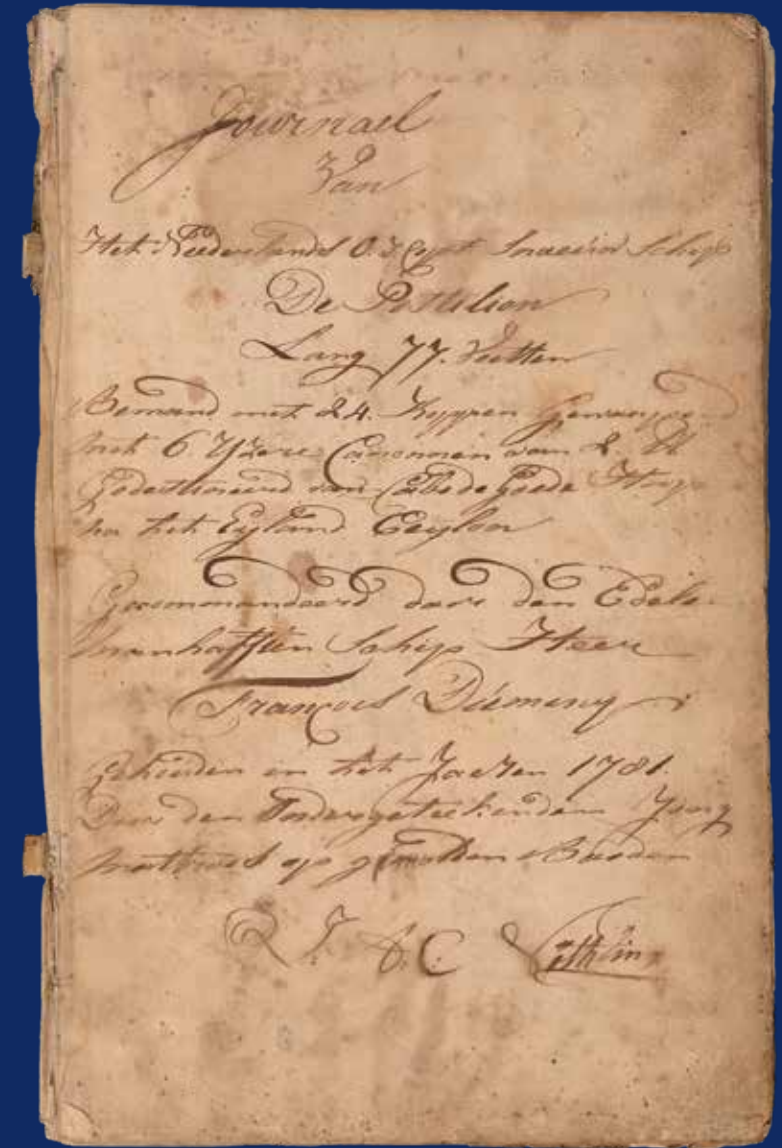 Journael
Van
Het Nederlands O. I. Comp. Schip
De Postilion
Lang 77. Voetten
Bemand met 24. Koppen Gemonteerd
met 6 Yzere Canonnen van 2. lb
Gedestineerd van Cabo de Goede Hoop
na het Eyland Ceylon
Gecommandeerd door den Edele
manhaften Schip Heer
François Duminy
Gehouden in het Jaer van 1781.
Door den Ondergeteekenden Jong
mattroos op gemelden Boodem